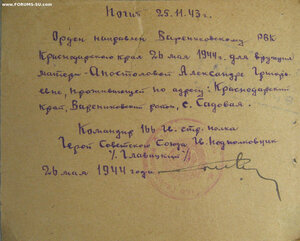 www.FORUMS-SU.com
Погиб 25.11.43 г.
Орден направлен Варениковскому РВК
Краснодарского края 26 мая 1944 г. для вручения
матери - Апостоловой Александре Григорь-
евне, проживающей по адресу: Краснодарский
край, Варениковский район, с. Садовая.
Командир 166 гв. стр. полка
Герой Советского Союза гв. подполковник
/Главацкий/
26 мая 1944 года